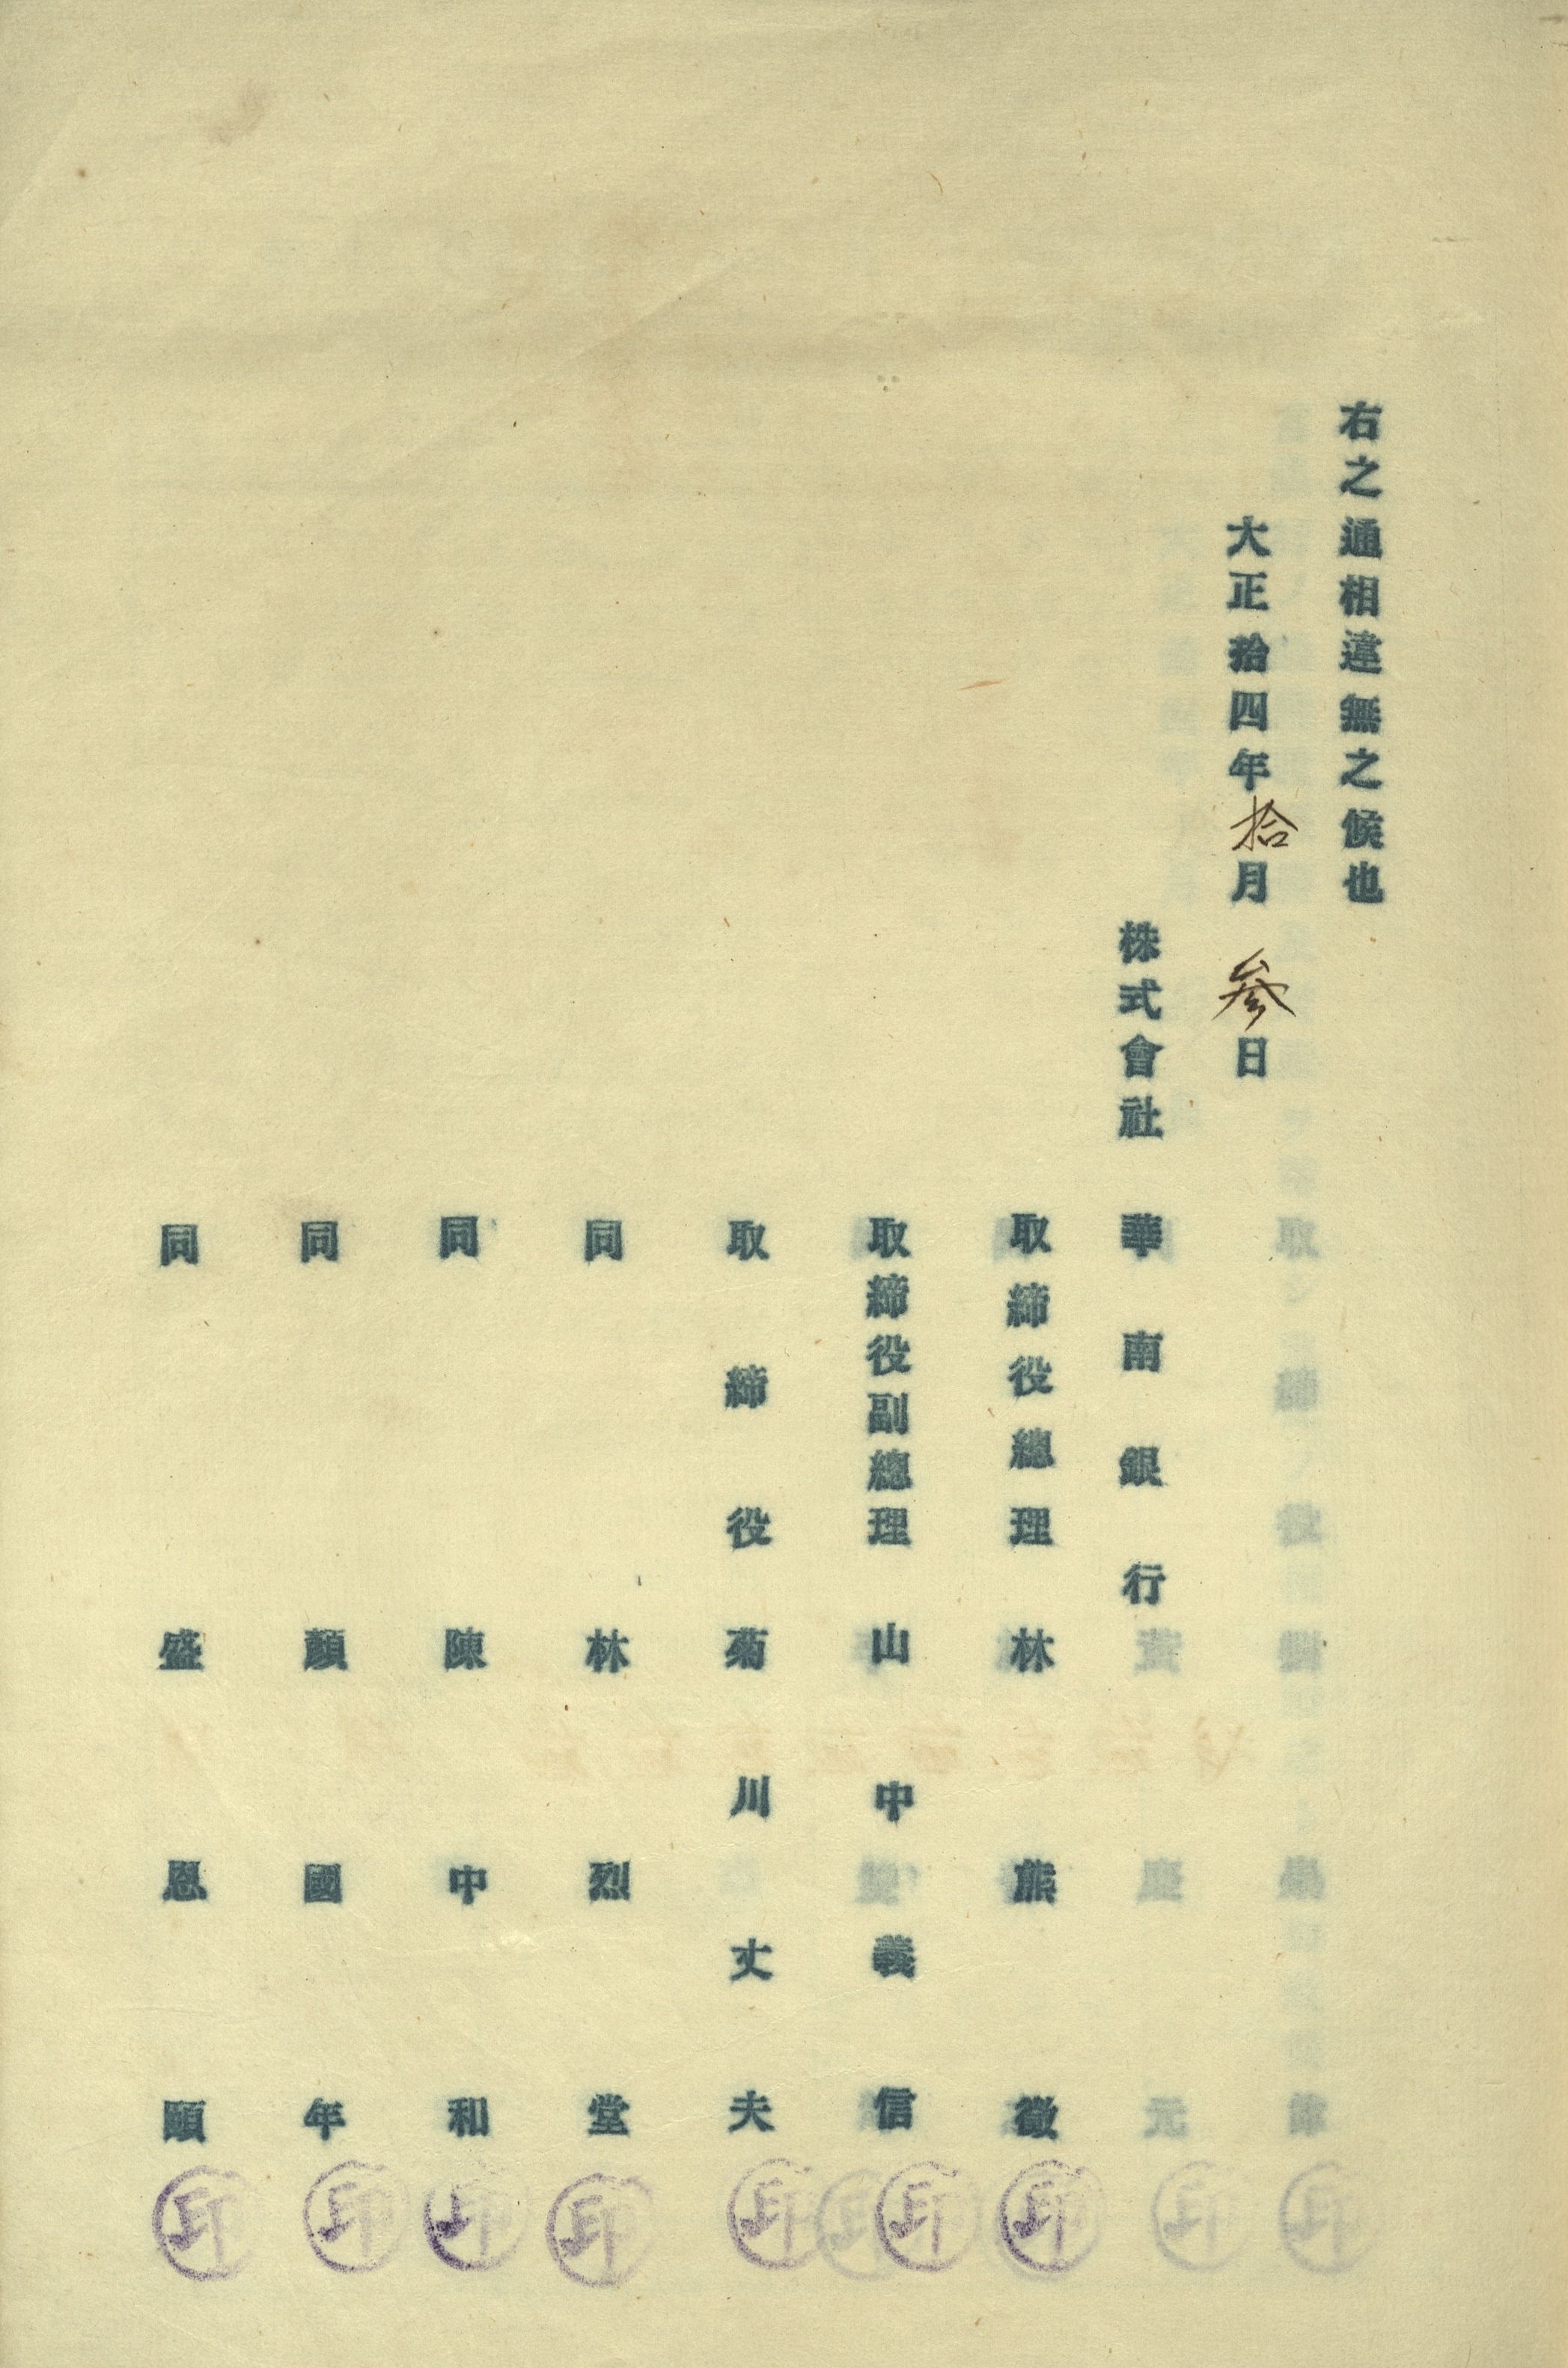 右之通相違無之候也
大正拾四年拾月參日
株式會社華南銀行
取締役總理林熊徵印
取締役副總理山中義信印
取締役菊川丈夫印
同林烈堂印
同陳中和印
同顏國年印
同盛恩頤印